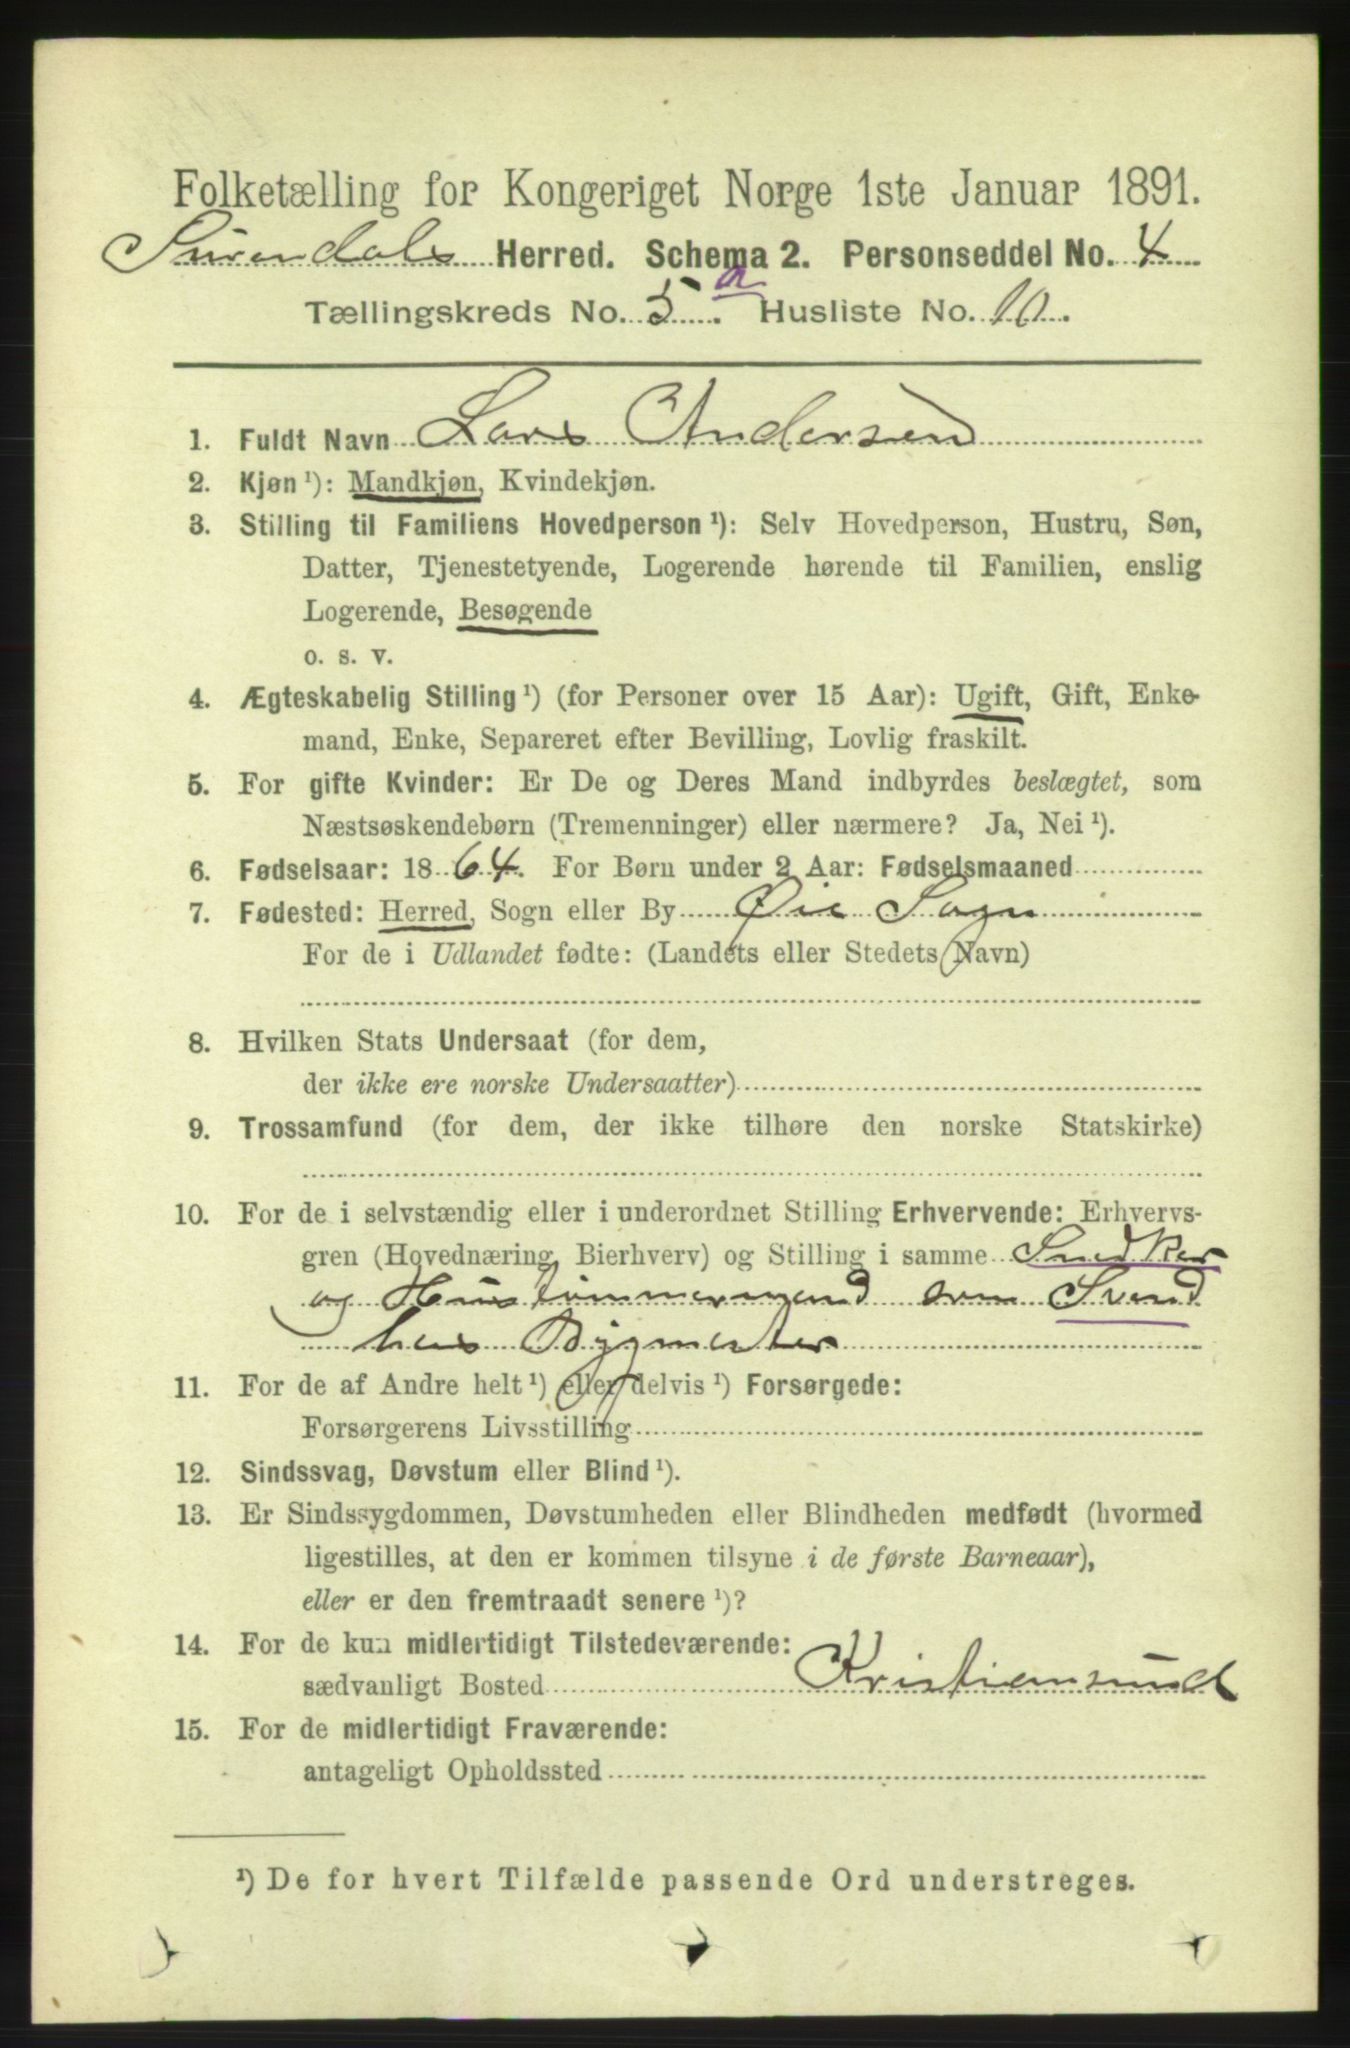 Folketælling for Kongeriget Norge 1ste Januar 1891.
Surendals Herred. Schema 2. Personseddel No. 4
Tællingskreds No. 5 a. Husliste No. 10.
1. Fuldt Navn Lars Andersen
2. Kjøn ¹): Mandkjøn, Kvindekjøn.
3. Stilling til Familiens Hovedperson ¹): Selv Hovedperson, Hustru, Søn,
Datter, Tjenestetyende, Logerende hørende til Familien, enslig
Logerende, Besøgende
o. s. v.
4. Ægteskabelig Stilling ¹) (for Personer over 15 Aar): Ugift, Gift, Enke-
mand, Enke, Separeret efter Bevilling, Lovlig fraskilt.
5. For gifte Kvinder: Er De og Deres Mand indbyrdes beslægtet, som
Næstsøskendebørn (Tremenninger) eller nærmere? Ja, Nei ¹).
6. Fødselsaar: 1864. For Børn under 2 Aar: Fødselsmaaned
7. Fødested: Herred, Sogn eller By Øie Sogn
For de i Udlandet fødte: (Landets eller Stedets Navn)
8. Hvilken Stats Undersaat (for dem,
der ikke ere norske Undersaatter)
9. Trossamfund (for dem, der ikke tilhøre den norske Statskirke)
10. For de i selvstændig eller i underordnet Stilling Erhvervende: Erhvervs-
gren (Hovednæring, Bierhverv) og Stilling i samme Snedker
og Hustømmermand som Svend
hos Bygmester
11. For de af Andre helt ¹) eller delvis ¹) Forsørgede:
Forsørgerens Livsstilling
12. Sindssvag, Døvstum eller Blind ¹).
13. Er Sindssygdommen, Døvstumheden eller Blindheden medfødt (hvormed
ligestilles, at den er kommen tilsyne i de første Barneaar),
eller er den fremtraadt senere ¹)?
14. For de kun midlertidigt Tilstedeværende:
sædvanligt Bosted Kristiansund
15. For de midlertidigt Fraværende:
antageligt Opholdssted
¹) De for hvert Tilfælde passende Ord understreges.